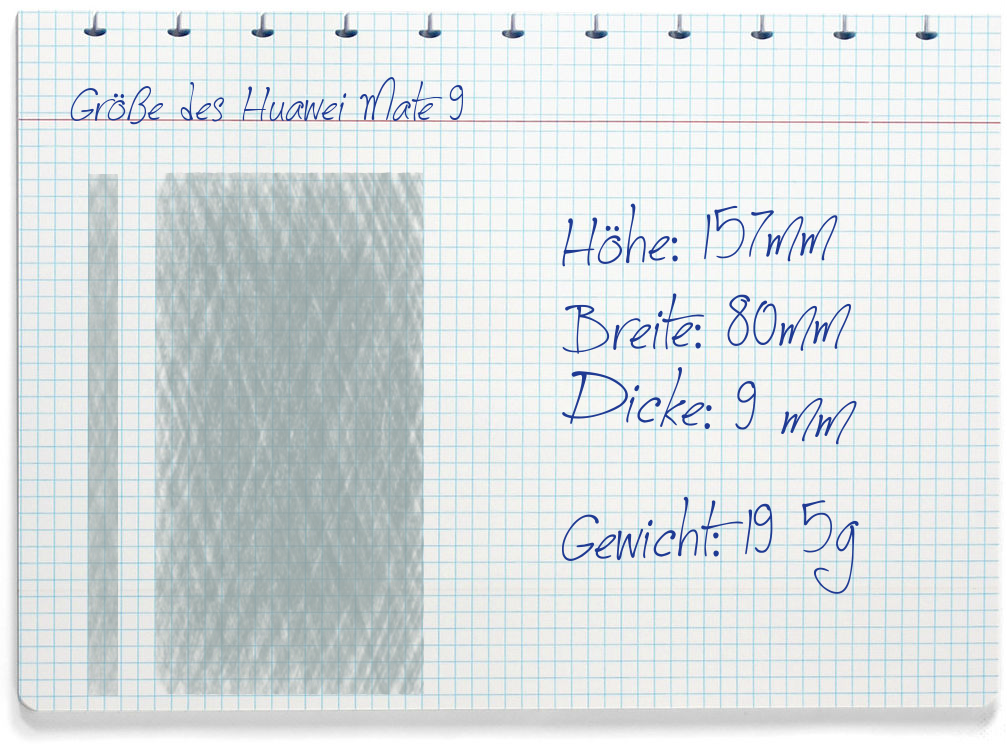 Größe des Huawei Mate 9
Höhe: 157mm
Breite: 80mm
Dicke: 9 mm
Gewicht: 19 5g